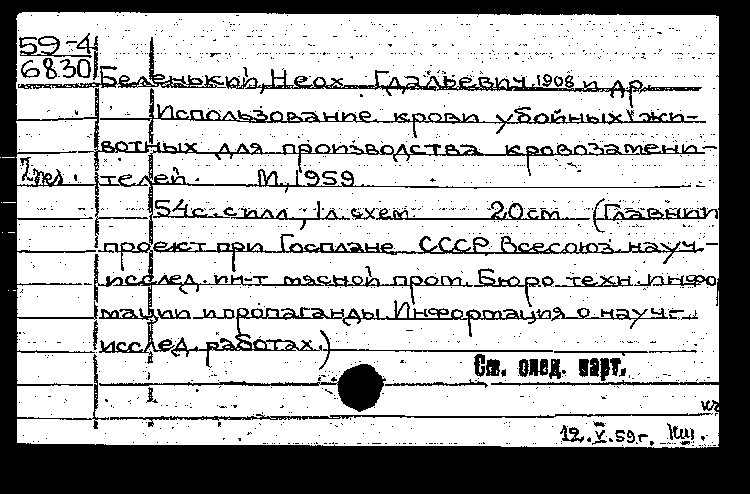 59-4
6830
Беленький, Неох Гдальевич, 1908 и др.
Использование крови убойных жи-
вотных для производства кровозамени-
2 экз. телей. М., 1959
54с. с илл., 1 л. схем 20см (Главнии
проект при Госплане СССР. Всесоюз. науч.-
исслед. ин-т мясной пром. Бюро техн. инфор
мации и пропаганды. Информация о науч.-
исслед. работах.)
См. след. карт.
12.V.59г.